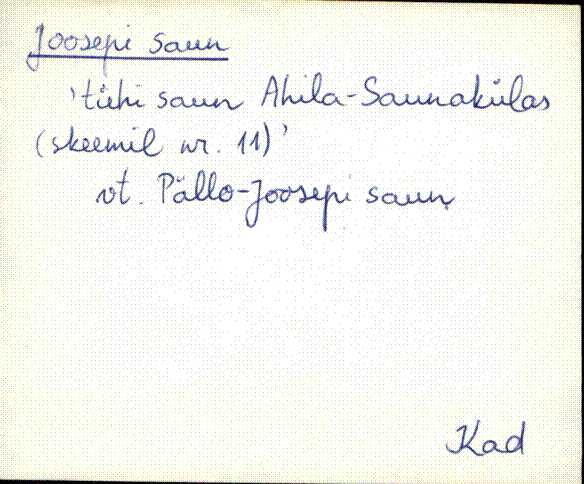 Joosepi saun
'tühi saun Ahila-Saunakülas
(skeemil nr. 11)'
vt. Pällo-Joosepi saun
Kad